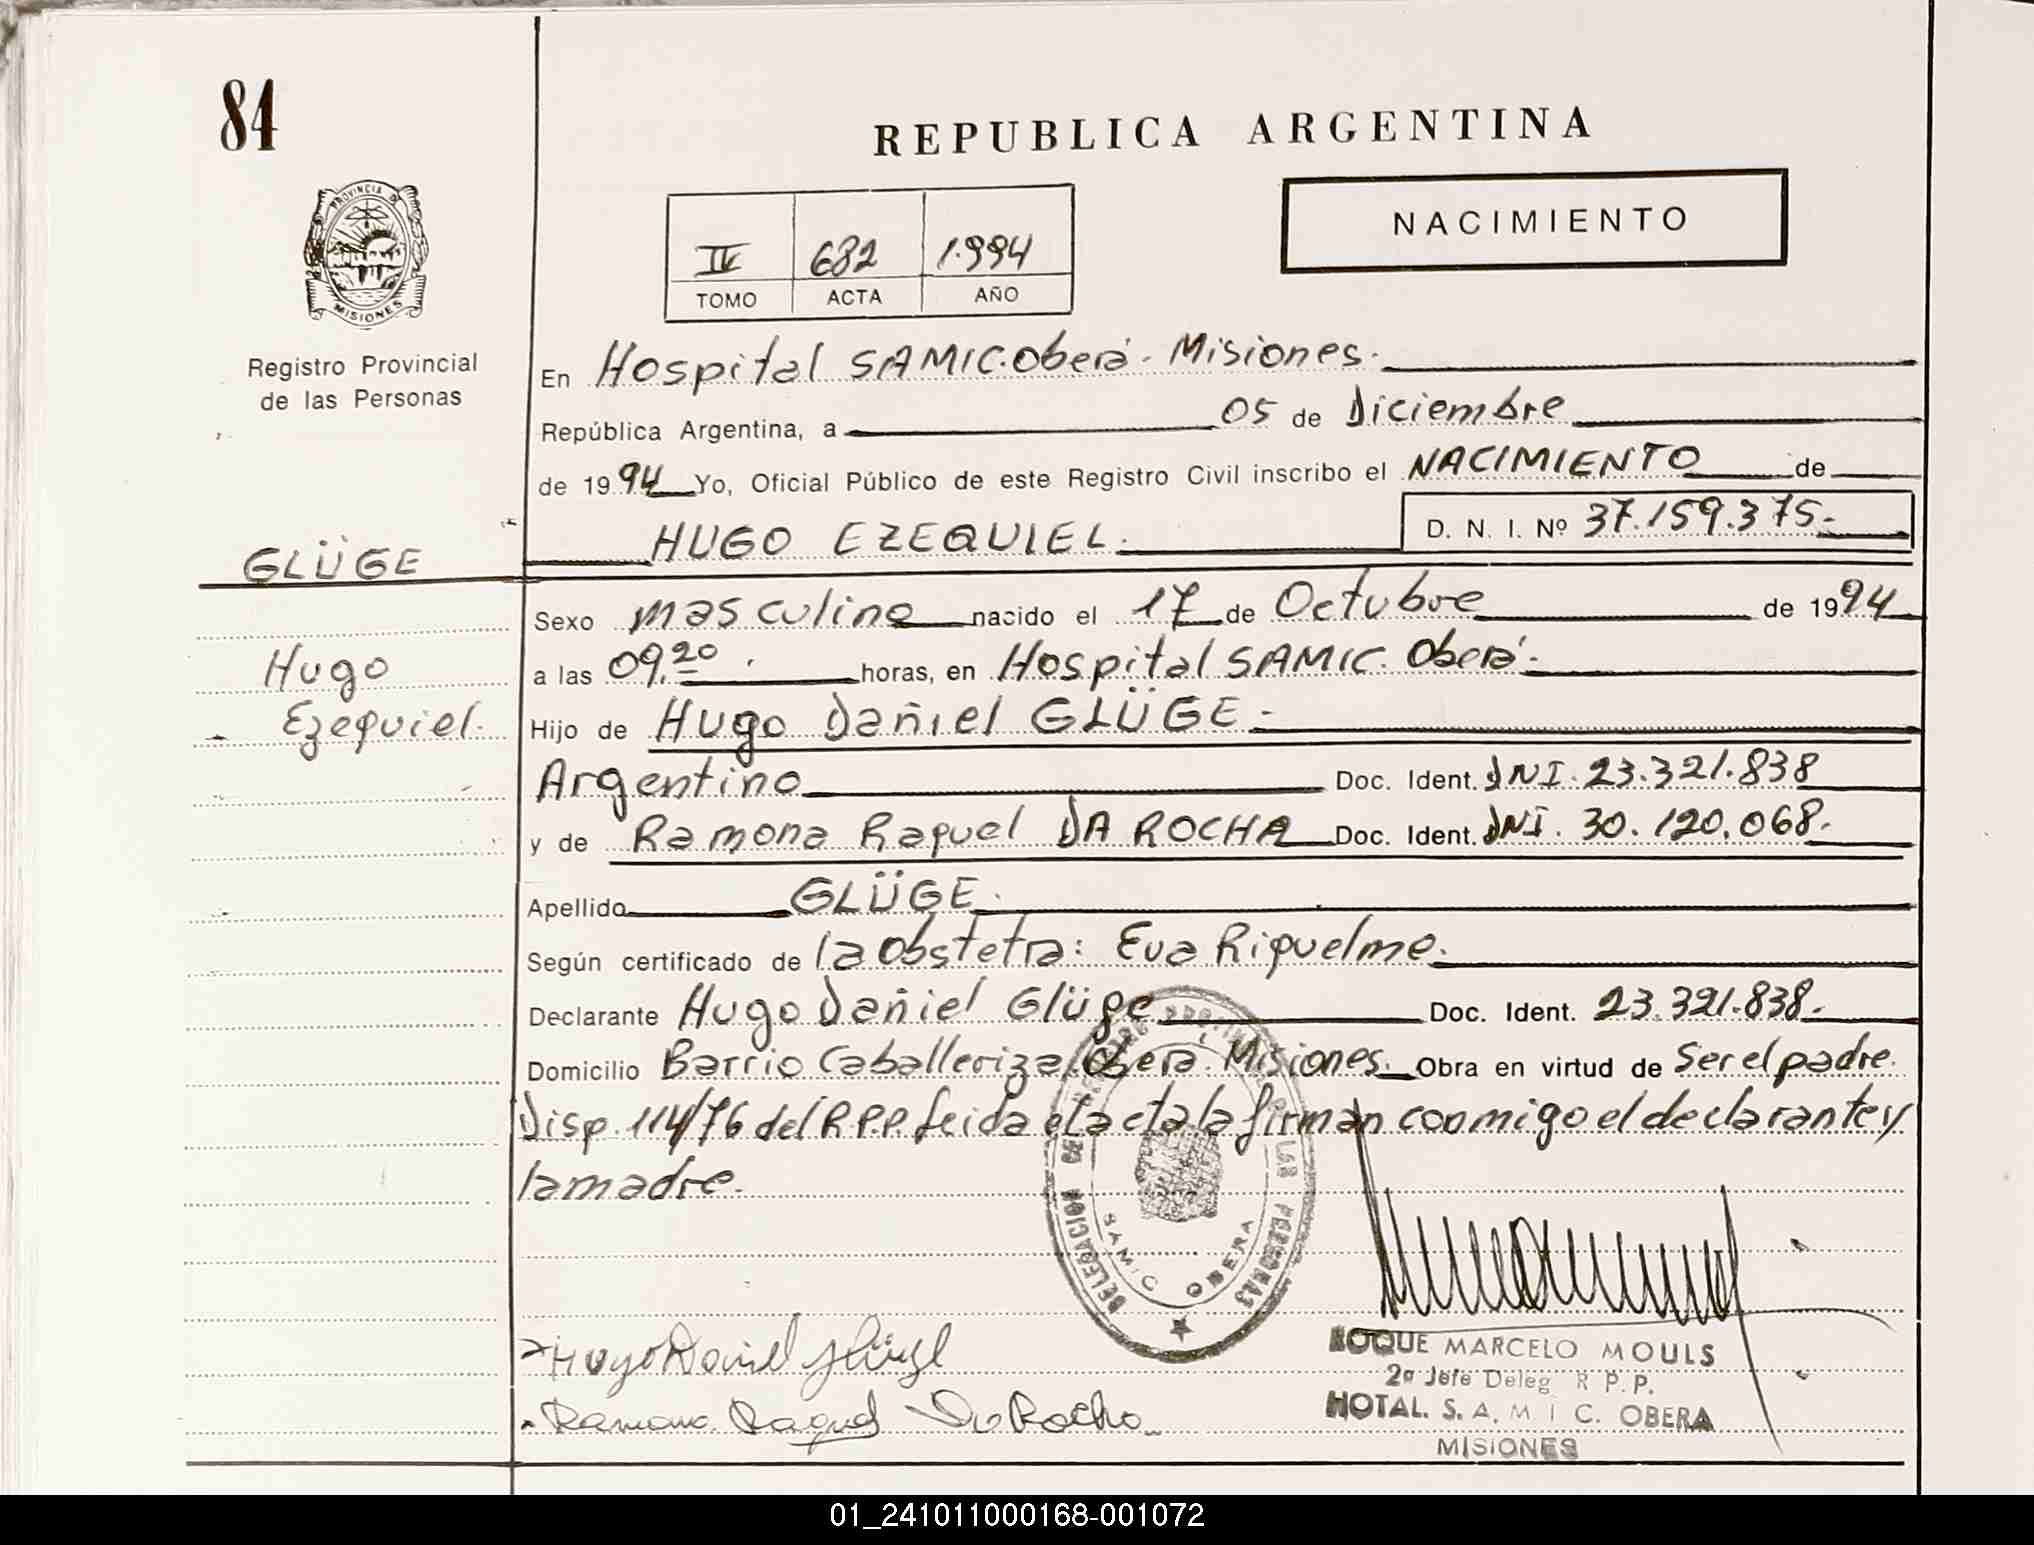 84
REPUBLICA ARGENTINA
NACIMIENTO
IV 682 1.994
TOMO ACTA AÑO
PROVINCIA DE
MISIONES
Registro Provincial
de las Personas
En Hospital SAMIC. Oberá - Misiones.
República Argentina, a 05 de Diciembre
de 1994 Yo, Oficial Público de este Registro Civil inscribo el NACIMIENTO de
HUGO EZEQUIEL. D. N. I. Nº 37.159.375.-
GLÜGE
Hugo
Ezequiel.
Sexo masculino nacido el 17 de Octubre de 1994
a las 09.20 horas, en Hospital SAMIC. Oberá.-
Hijo de Hugo Daniel GLÜGE.-
Argentino Doc. Ident. DNI. 23.321.838
y de Ramona Raquel DA ROCHA Doc. Ident. DNI. 30.120.068.
Apellido GLÜGE.
Según certificado de la Obstetra: Eva Riquelme.
Declarante Hugo Daniel Glüge Doc. Ident. 23.321.838.-
Domicilio Barrio Caballeriza, Oberá. Misiones. Obra en virtud de Ser el padre.
Disp. 114/76 del R.P.P. leida el acta la firman conmigo el declarante y
la madre.
DELEGACION DE LAS PERSONAS
SAMIC OBERA
Hugo Daniel Glüge
Ramona Raquel Da Rocha
ROQUE MARCELO MOULS
2º Jefe Deleg R P.P.
HOTAL. S. A. M I C. OBERA
MISIONES
01_241011000168-001072